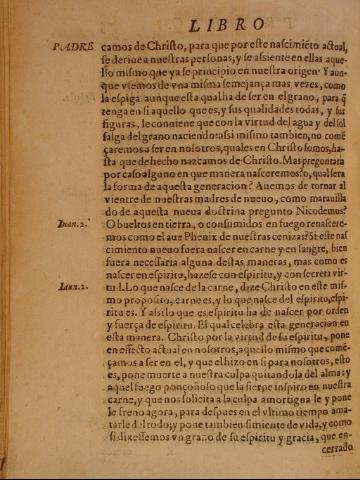 LIBRO
PADRE
camos de Christo, para que por este nascimiẽto actual,
se deriue a nuestras personas, y se assiente en ellas aque-
llo mismo que ya se principio en nuestra origen. Y aun-
que vsemos de vna misma semejança mas vezes, como
la espiga aunque esta qual ha de ser en el grano, para q̃
tenga en si aquello que es, y sus qualidades todas, y sus
figuras, le conuiene que con la virtud del agua y del sol
salga del grano naciendo: assi mismo tambien, no comẽ
çaremos a ser en nosotros, quales en Christo somos, ha-
sta que de hecho nazcamos de Christo. Mas preguntara
por caso alguno en que manera nasceremos? o, qual sera
la forma de aquesta generacion? Auemos de tornar al
vientre de nuestras madres de nueuo, como marauilla
do de aquesta nueua doctrina pregunto Nicodemus?
Iuan. 2.
O bueltos en tierra, o consumidos en fuego renascere-
mos como el aue Phenix de nuestras cenizas? Si este nas
cimiento nueuo fuera nascer en carne y en sangre, bien
fuera necessaria alguna destas maneras, mas como es
nascer en espiritu, hazese con espiritu, y con secreta vir-
Iuan. 2.
tud. Lo que nasce de la carne, dize Christo en este mis-
mo proposito, carne es, y lo que nasce del espiritu, espi-
ritu es. Y assi lo que es espiritu ha de nascer por orden
y fuerça de espiritu. El qual celebra esta generacion en
esta manera. Christo por la virtud de su espiritu, pone
en effecto actual en nosotros, aquello mismo que comẽ-
çamos a ser en el, y que el hizo en si para nosotros, esto
es, pone muerte a nuestra culpa quitandola del alma: y
aquel fuego ponçoñoso que la sierpe inspiro en nuestra
carne, y que nos solicita a la culpa amortigua le y pone
le freno agora, para despues en el vltimo tiempo ama-
tarle del todo; y pone tambien simiente de vida, y como
si dixessemos vn grano de su espiritu y gracia, que en-
cerrado